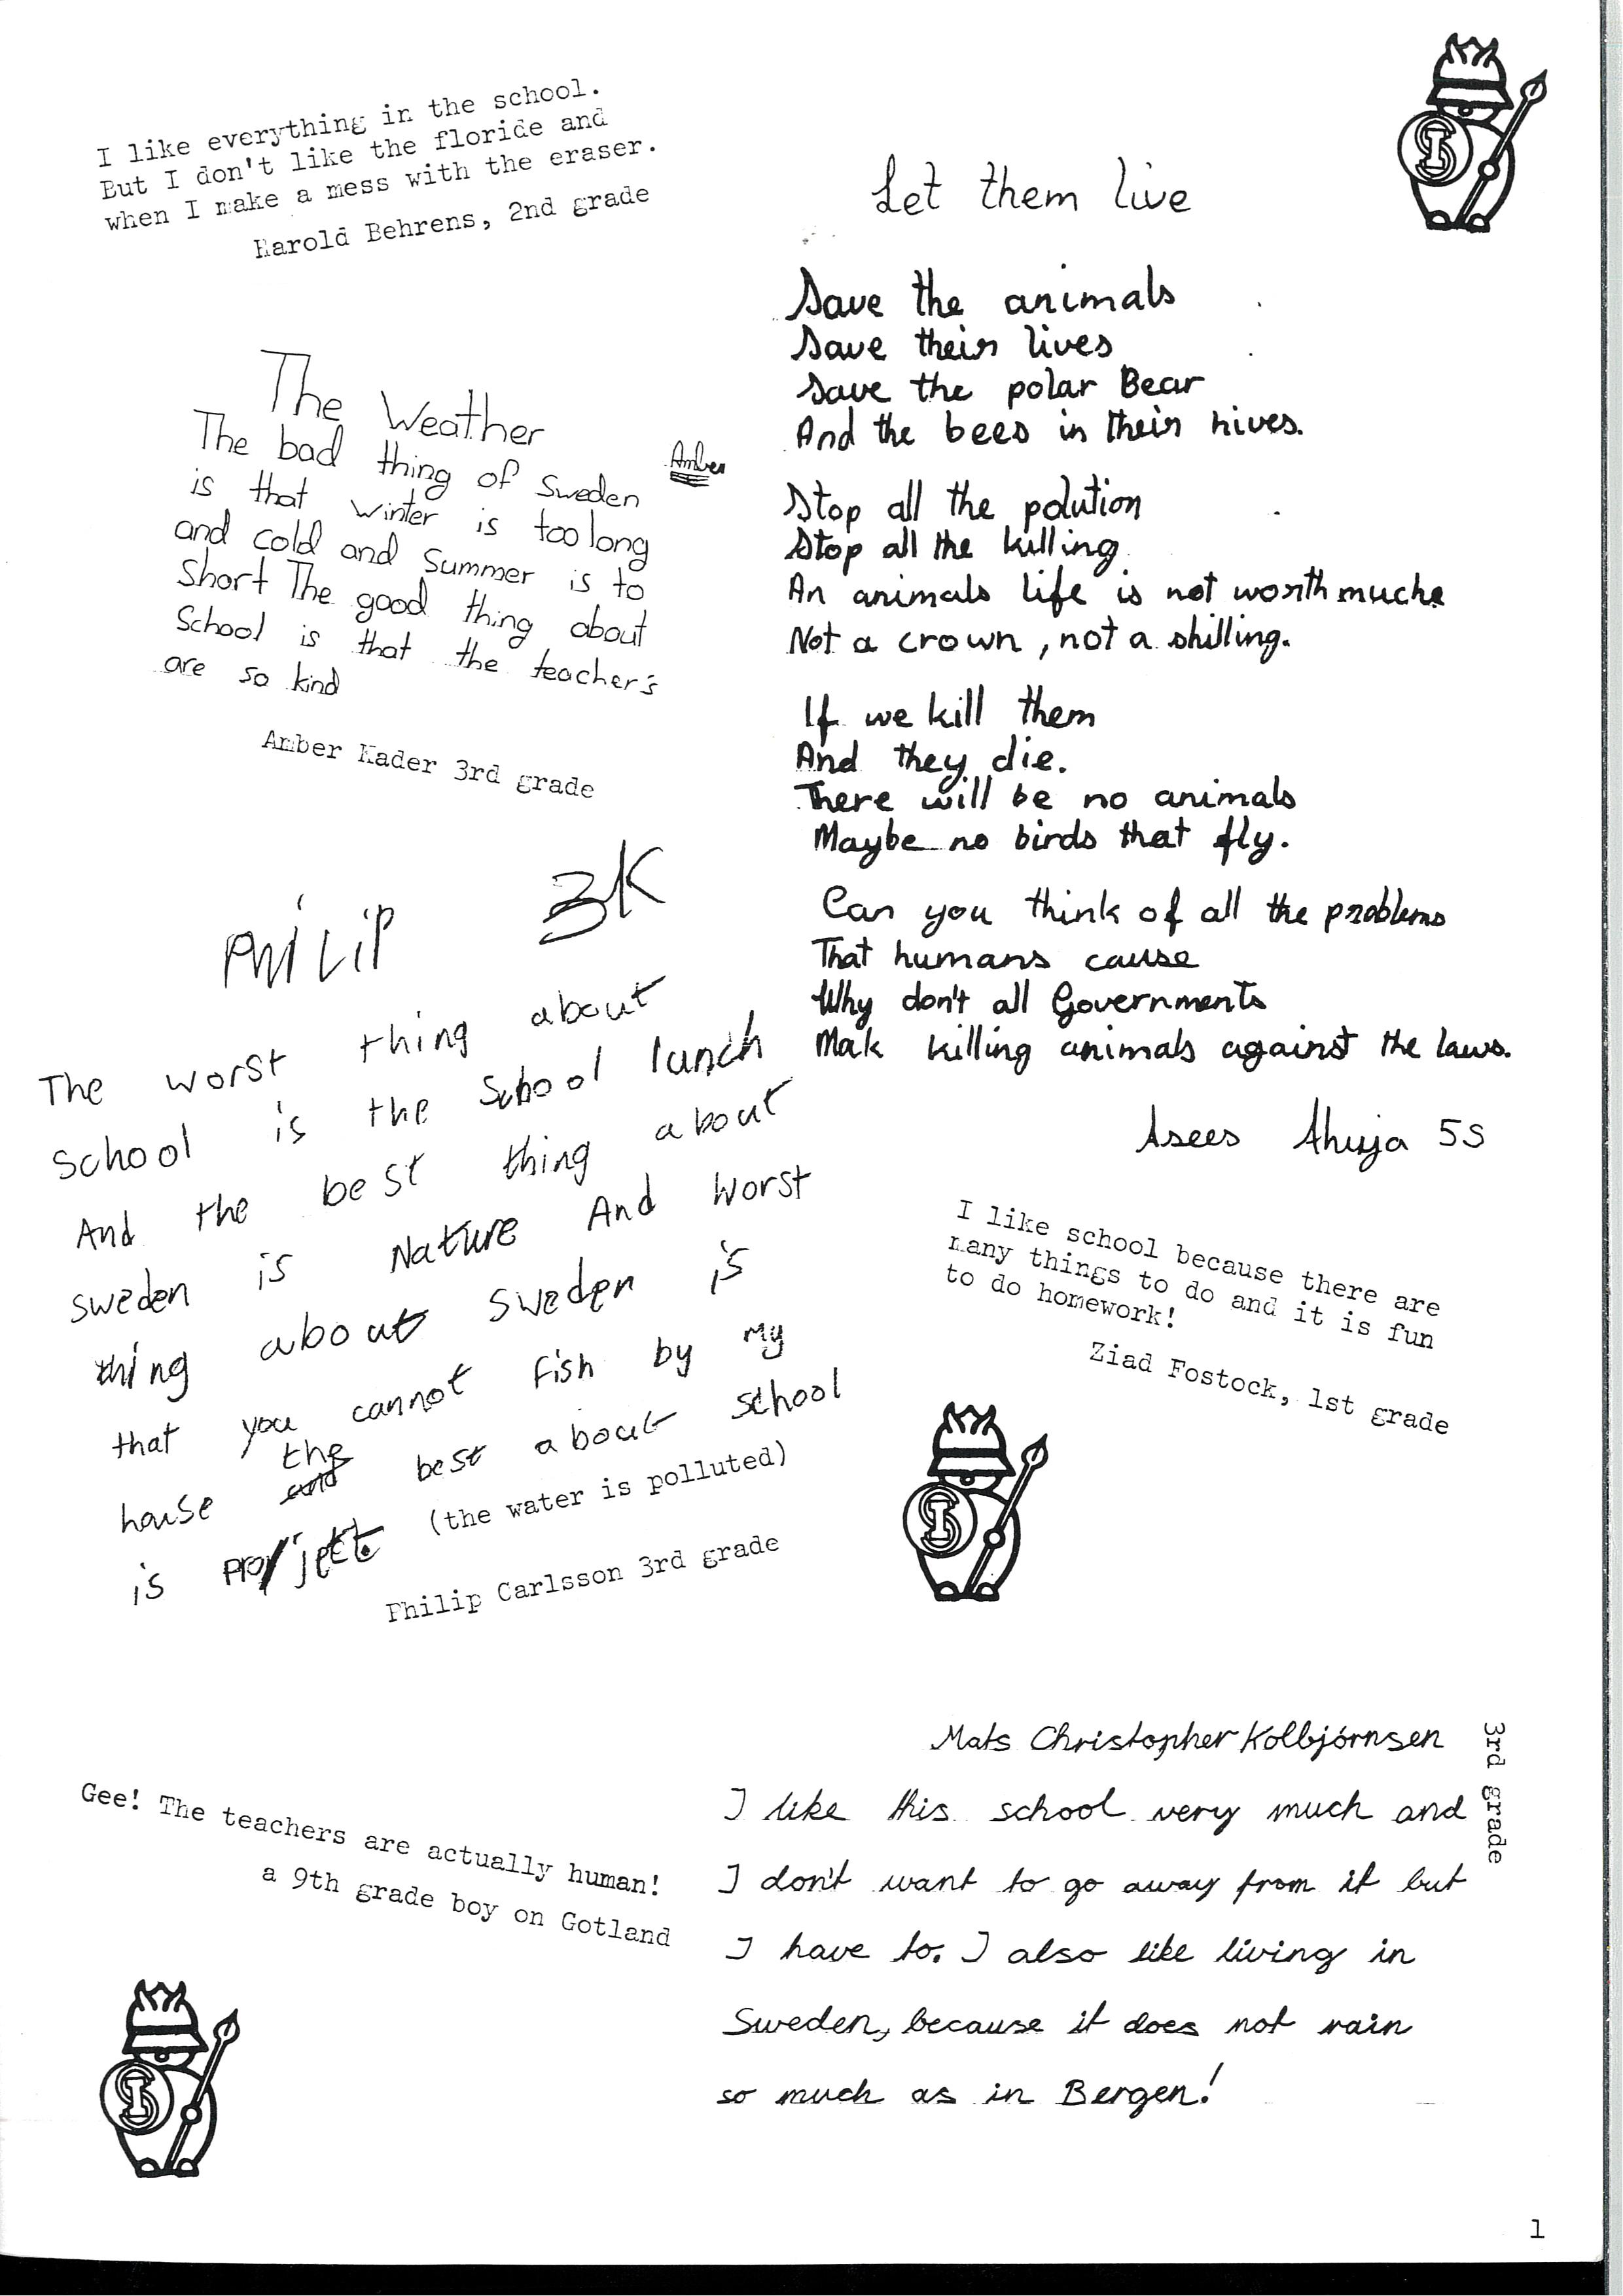 I like everything in the school.
But I don't like the floride and
when I make a mess with the eraser.
Harold Behrens, 2nd grade
The Weather
Amber
The bad thing of Sweden
is that winter is too long
and cold and Summer is to
short The good thing about
School is that the teacher's
are so kind
Amber Kader 3rd grade
PhiLiP 3K
The worst thing about
School is the School lunch
And the best thing about
sweden is Nature And Worst
thing about sweden is
that you cannot fish by my
house the best about school
is projekt.
(the water is polluted)
Philip Carlsson 3rd grade
Gee! The teachers are actually human!
a 9th grade boy on Gotland
Let them live
Save the animals
Save their lives
Save the polar Bear
And the bees in their hives.
Stop all the polution
Stop all the killing
An animals life is not worth muche
Not a crown, not a shilling.
If we kill them
And they die.
There will be no animals
Maybe no birds that fly.
Can you think of all the problems
That humans cause
Why don't all Governments
Mak killing animals against the laws.
Asees Ahuja 5S
I like school because there are
many things to do and it is fun
to do homework!
Ziad Fostock, 1st grade
Mats Christopher Kolbjórnsen
3rd grade
I like this school very much and
I don't want to go away from it but
I have to. I also like living in
Sweden, because it does not rain
so much as in Bergen!
1